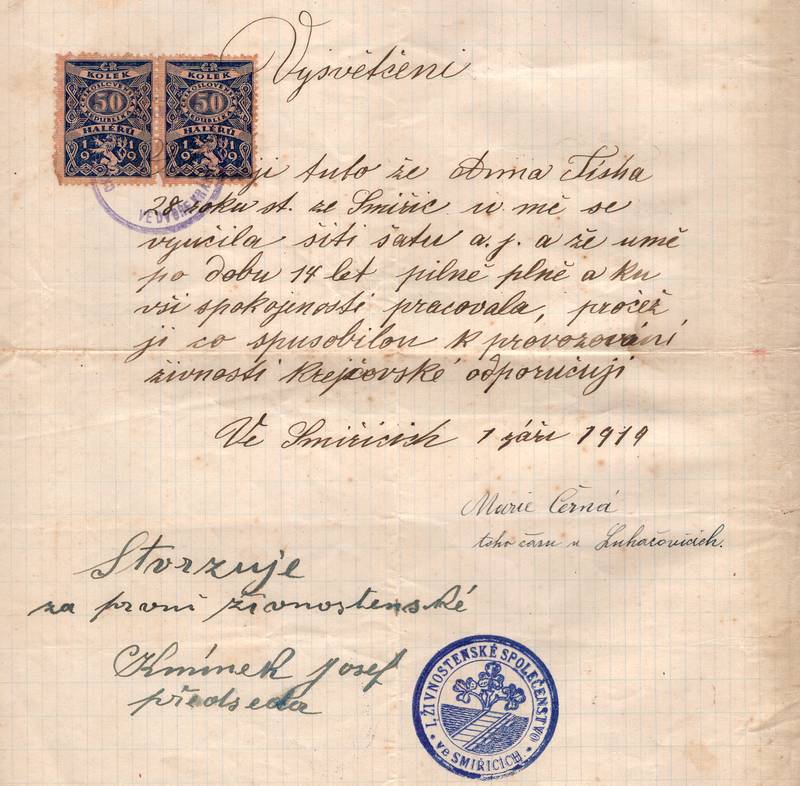 Vysvětčeni
ČR
KOLEK
50
HALÉŘŮ
1919
ČR
KOLEK
50
HALÉŘŮ
1919
VE DVOŘE KR
tuto že Anna Fisha
28 roku st. ze Smiřic u mě se
vyučila šiti šatu a. j. a že umě
po dobu 14 let pilně plně a ku
vši spokojenosti pracovala, pročež
ji co spusobilou k provozování
živnosti krejčovské odporučuji
Ve Smiřicich 1 září 1919
Marie Černá
toho času v Luhačovicich.
Stvrzuje
za první živnostenské
Kmínek Josef
předseda
I. ŽIVNOSTENSKÉ SPOLEČENSTVO
ve SMIŘICÍCH